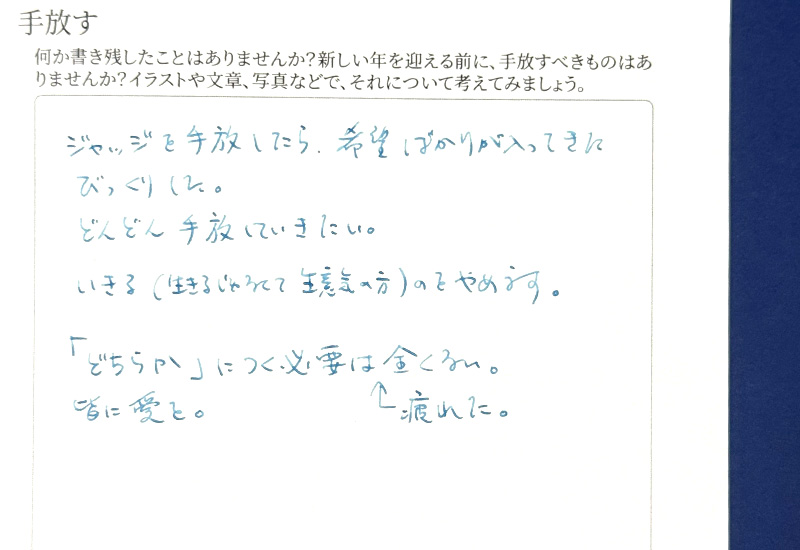 手放す
何か書き残したことはありませんか?新しい年を迎える前に、手放すべきものはあ
りませんか?イラストや文章、写真などで、それについて考えてみましょう。
ジャッジを手放したら、希望ばかりが入ってきた
びっくりした。
どんどん手放していきたい。
いきる(生きるじゃなくて生意気の方)のをやめます。
「どちらか」につく必要は全くない。
皆に愛を。
↑疲れた。